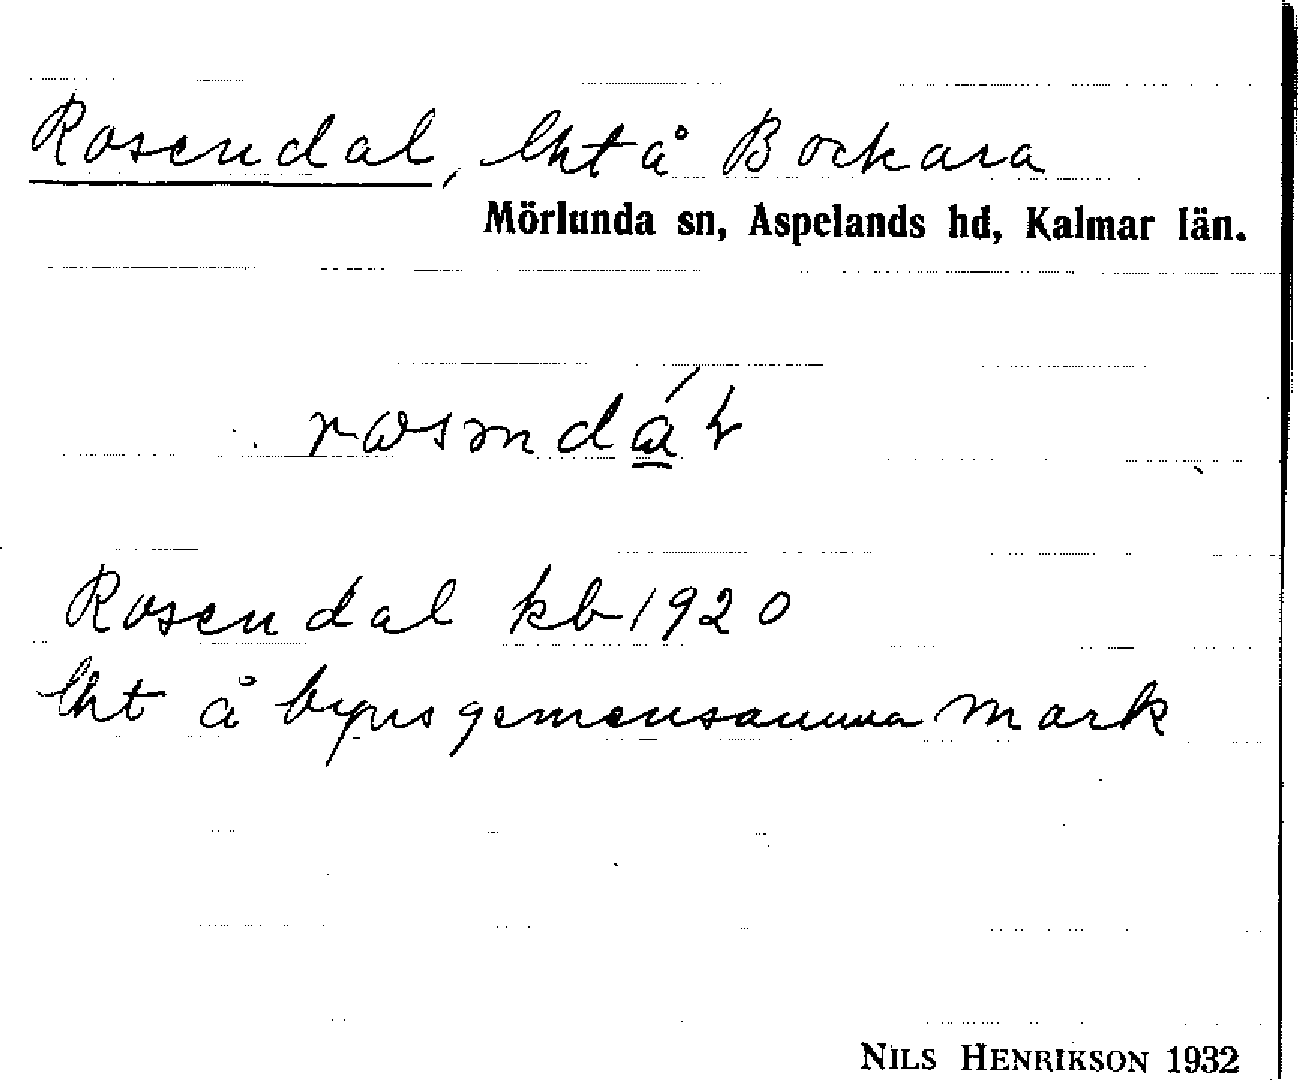 Rosendal, lht å Bockara
Mörlunda sn, Aspelands hd, Kalmar län.
Rosendal kb 1920
lht å byns gemensamma mark
NILS HENRIKSON 1932